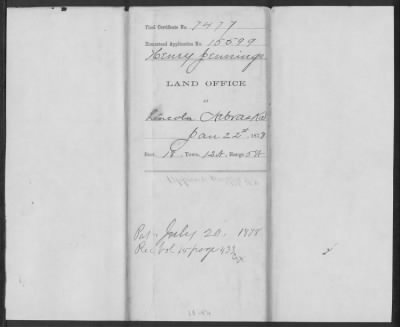 Final Certificate No. 7477
Homestead Application No. 15599
Henry Jennings
LAND OFFICE
at
Lincoln Nebraska
Jan 22d, 1878
Sect. 18, Town. 12N, Range 5W
Approved
Pat. July 20, 1878
Rec. Vol 10 page 433